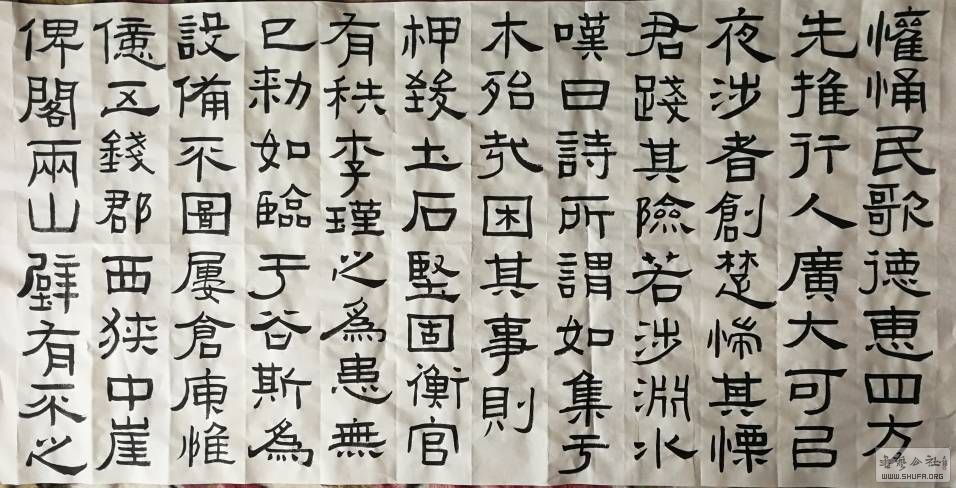 懽悀民歌德惠四方
先推行人廣大可㠯
夜涉者創楚惴其慄
君踐其險若涉淵水
嘆曰詩所謂如集于
木殆哉困其事則
柙致土石堅固衡官
有秩李瑾之為患無
已勑如臨于谷斯為
設備不圖屢倉庾惟
億五錢郡西狹中崖
俾閣兩山壁有不之
書法公社
WWW.SHUFA.ORG